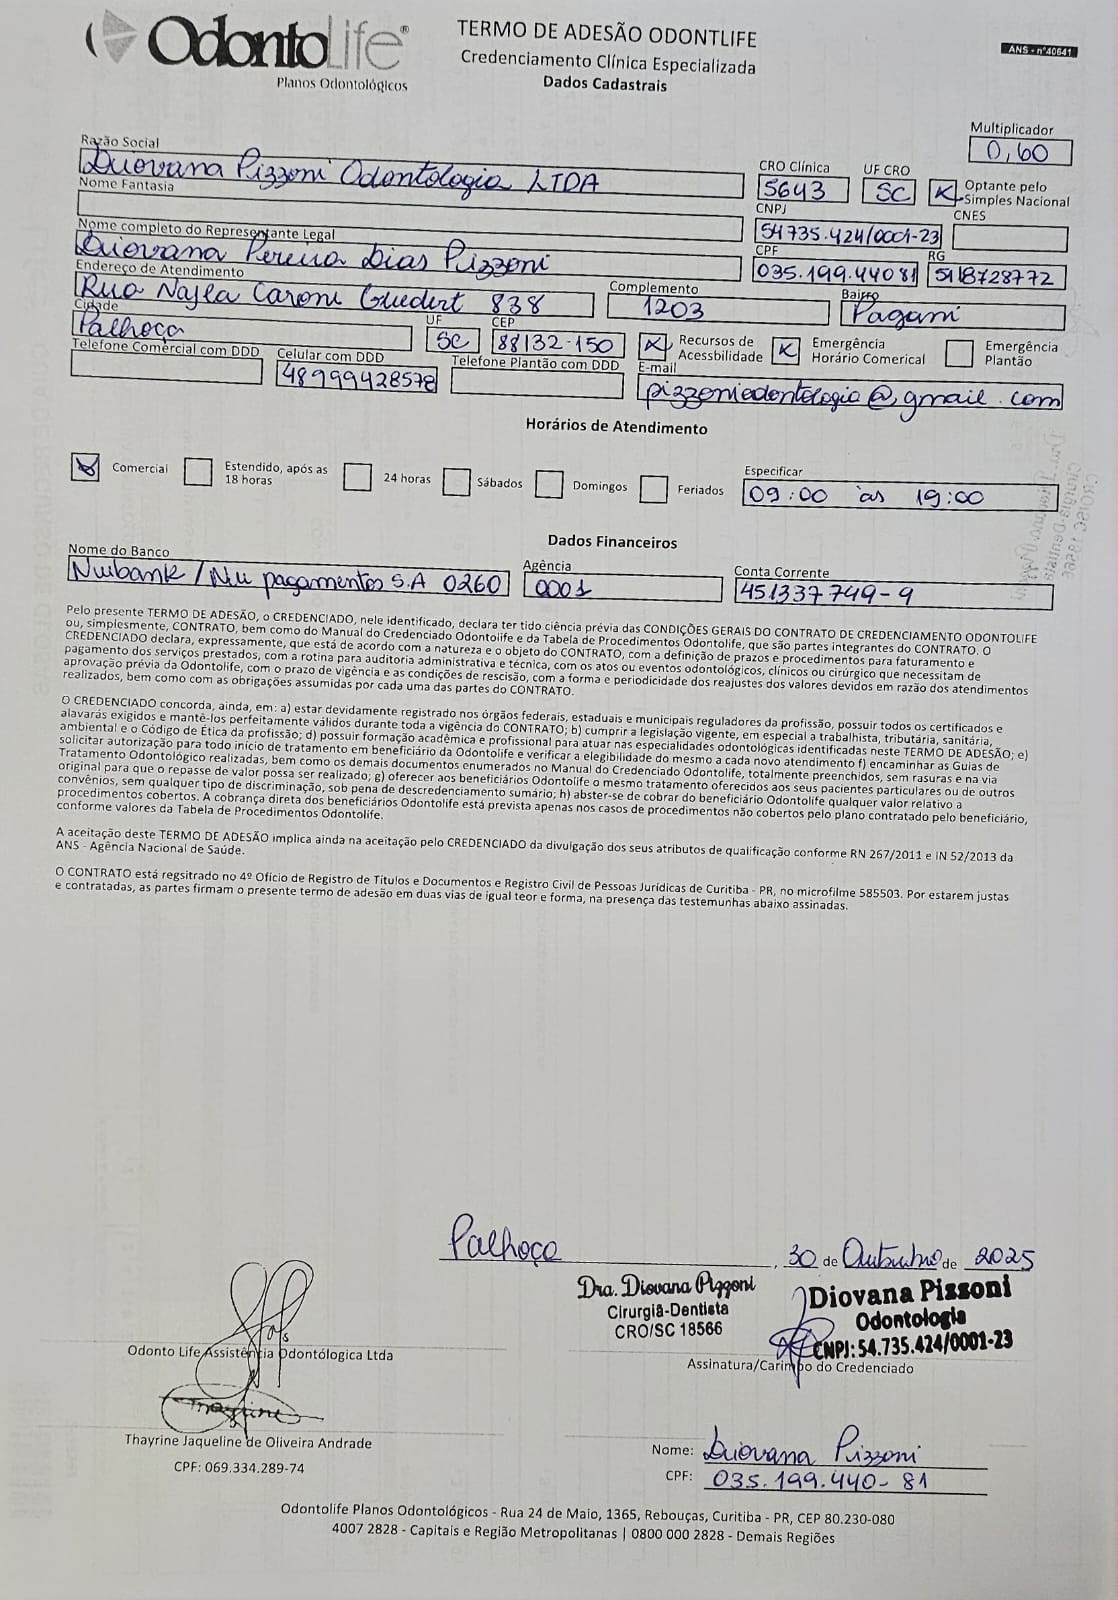 OdontoLife®
Planos Odontológicos
TERMO DE ADESÃO ODONTLIFE
Credenciamento Clínica Especializada
Dados Cadastrais
ANS - nº40641
Multiplicador
0,60
Razão Social
Diovana Pizzoni Odontologia LTDA
CRO Clínica
5643
UF CRO
SC
X Optante pelo
Simples Nacional
Nome Fantasia
CNPJ
54735.424/0001-23
CNES
Nome completo do Representante Legal
Diovana Pereira Dias Pizzoni
CPF
035.199.440 81
RG
5118728772
Endereço de Atendimento
Rua Najla Caroni Guedert 838
Complemento
1203
Bairro
Pagani
Cidade
Palhoça
UF
SC
CEP
88132-150
X Recursos de
Acessbilidade
X Emergência
Horário Comerical
Emergência
Plantão
Telefone Comercial com DDD
Celular com DDD
48999428578
Telefone Plantão com DDD
E-mail
pizzoniodontologia@gmail.com
Horários de Atendimento
Comercial
Estendido, após as
18 horas
24 horas
Sábados
Domingos
Feriados
Especificar
09:00 às 19:00
Dados Financeiros
Nome do Banco
Nubank / Nu pagamentos S.A 0260
Agência
0001
Conta Corrente
451337749-9
Pelo presente TERMO DE ADESÃO, o CREDENCIADO, nele identificado, declara ter tido ciência prévia das CONDIÇÕES GERAIS DO CONTRATO DE CREDENCIAMENTO ODONTOLIFE
ou, simplesmente, CONTRATO, bem como do Manual do Credenciado Odontolife e da Tabela de Procedimentos Odontolife, que são partes integrantes do CONTRATO. O
CREDENCIADO declara, expressamente, que está de acordo com a natureza e o objeto do CONTRATO, com a definição de prazos e procedimentos para faturamento e
pagamento dos serviços prestados, com a rotina para auditoria administrativa e técnica, com os atos ou eventos odontológicos, clínicos ou cirúrgico que necessitam de
aprovação prévia da Odontolife, com o prazo de vigência e as condições de rescisão, com a forma e periodicidade dos reajustes dos valores devidos em razão dos atendimentos
realizados, bem como com as obrigações assumidas por cada uma das partes do CONTRATO.
O CREDENCIADO concorda, ainda, em: a) estar devidamente registrado nos órgãos federais, estaduais e municipais reguladores da profissão, possuir todos os certificados e
alavarás exigidos e mantê-los perfeitamente válidos durante toda a vigência do CONTRATO; b) cumprir a legislação vigente, em especial a trabalhista, tributária, sanitária,
ambiental e o Código de Ética da profissão; d) possuir formação acadêmica e profissional para atuar nas especialidades odontológicas identificadas neste TERMO DE ADESÃO; e)
solicitar autorização para todo início de tratamento em beneficiário da Odontolife e verificar a elegibilidade do mesmo a cada novo atendimento f) encaminhar as Guias de
Tratamento Odontológico realizadas, bem como os demais documentos enumerados no Manual do Credenciado Odontolife, totalmente preenchidos, sem rasuras e na via
original para que o repasse de valor possa ser realizado; g) oferecer aos beneficiários Odontolife o mesmo tratamento oferecidos aos seus pacientes particulares ou de outros
convênios, sem qualquer tipo de discriminação, sob pena de descredenciamento sumário; h) abster-se de cobrar do beneficiário Odontolife qualquer valor relativo a
procedimentos cobertos. A cobrança direta dos beneficiários Odontolife está prevista apenas nos casos de procedimentos não cobertos pelo plano contratado pelo beneficiário,
conforme valores da Tabela de Procedimentos Odontolife.
A aceitação deste TERMO DE ADESÃO implica ainda na aceitação pelo CREDENCIADO da divulgação dos seus atributos de qualificação conforme RN 267/2011 e IN 52/2013 da
ANS - Agência Nacional de Saúde.
O CONTRATO está regsitrado no 4º Ofício de Registro de Títulos e Documentos e Registro Civil de Pessoas Jurídicas de Curitiba - PR, no microfilme 585503. Por estarem justas
e contratadas, as partes firmam o presente termo de adesão em duas vias de igual teor e forma, na presença das testemunhas abaixo assinadas.
Palhoça, 30 de Outubro de 2025
Dra. Diovana Pizzoni
Cirurgiã-Dentista
CRO/SC 18566
Diovana Pissoni
Odontologia
CNPJ: 54.735.424/0001-23
Odonto Life Assistência Odontólogica Ltda
Assinatura/Carimpo do Credenciado
Thayrine
Thayrine Jaqueline de Oliveira Andrade
CPF: 069.334.289-74
Nome: Diovana Pizzoni
CPF: 035.199.440-81
Odontolife Planos Odontológicos - Rua 24 de Maio, 1365, Rebouças, Curitiba - PR, CEP 80.230-080
4007 2828 - Capitais e Região Metropolitanas | 0800 000 2828 - Demais Regiões